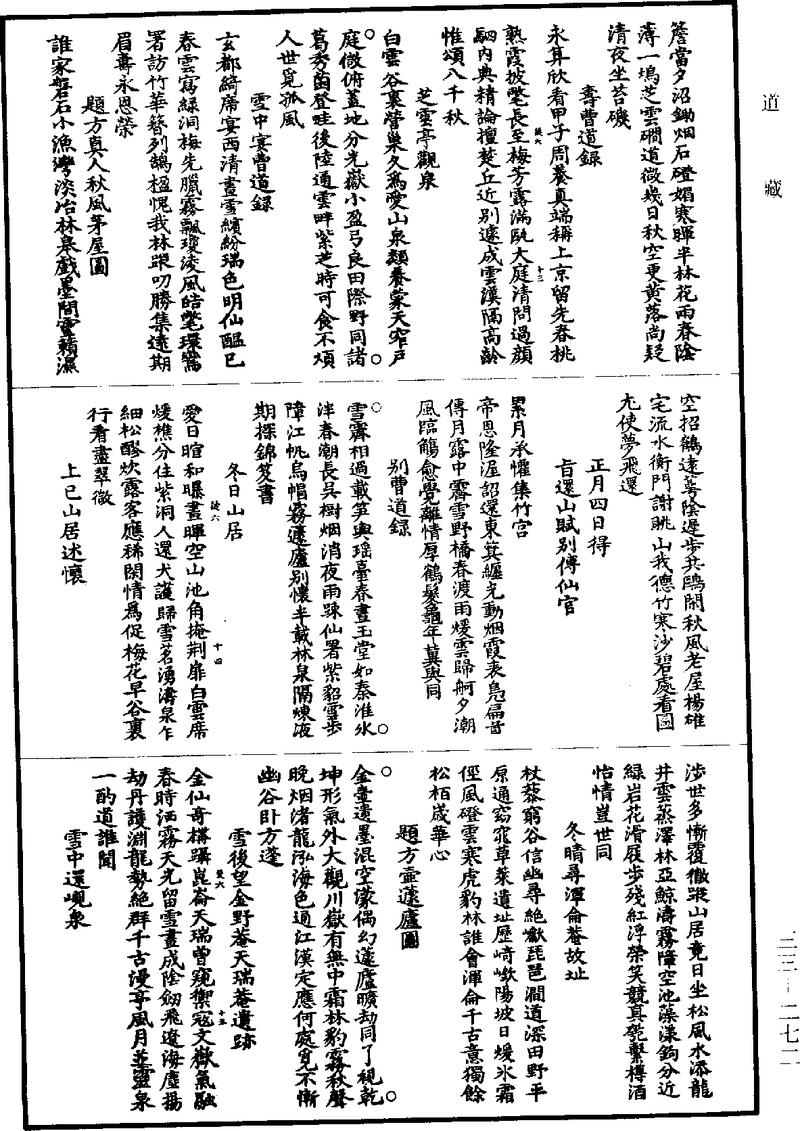 道藏
簷當夕沼鋤烟石磴媚寒暉半林花雨春陰
薄一塢芝雲磵道微幾日秋空更黃落尚疑
清夜坐苔磯
壽曹道録
永耳欣看甲子周養真端稱上京留先春桃
熟霞披氅長至梅芳露滿甌大庭清問過顔
駟內典精論擅楚丘近别遽成雲漢隔高齡
惟頌八千秋
芝雲亭觀泉
白雲谷裏營巢久爲愛山泉頮養蒙天窄戶
庭微俯蓋地分光嶽小盈弓良田際野同諸
葛秀菌登畦後陸通雲畔紫芝時可食不煩
人世覓孤風
雪中宴曹道録
玄都綺席宴西清晝雪繽紛瑞色明仙醞已
春雲寫緑洞梅先臘霧飄瓊淩風皓氅環鴛
署訪竹華簪列鵠楹愧我林踪叨勝集遠期
眉壽永恩榮
題方真人秋風茅屋圖
誰家磐石小漁灣淡冶林皋戲墨間靈籟濕
空招鶴遠蓴陰遲步共鷗閑秋風老屋楊雄
宅流水衡門謝眺山我憶竹寒沙碧處看圖
尤使夢飛還
正月四日得
旨還山賦别傅仙官
累月承懽集竹宮
帝恩隆渥詔還東箕纏光動烟霞表鳧舄昔
傳月露中霽雪野橋春渡雨煖雲歸舸夕潮
風臨觴愈覺離情厚鶴髮龜年冀與同
别曹道録
雪霽相過載筍輿瑶臺春晝玉堂如秦淮冰
泮春潮長吳樹烟消夜雨踈仙署紫貂雪步
障江帆烏帽霧蘧廬别懷半載林泉隔煉液
期探錦笈書
冬日山居
愛日暄和曝晝暉空山池角掩荆扉白雲席
煖樵分住紫洞人還犬護歸雪茗湧濤泉乍
細松醪炊露客應稀閑情爲促梅花早谷裏
行看盡翠微
上巳山居述懷
涉世多慚覆轍蹤山居竟日坐松風水添龍
井雲蒸澤林亞鯨濤霧障空池藻漾鈎分近
緑岩花滑屐步殘紅浮榮笑競真匏繫樽酒
怡情豈世同
冬晴尋渾侖菴故址
杖藜窮谷信幽尋絶巘琵琶澗道深田野平
原通窈窕草萊遺址歷崎嶔陽坡日煖氷霜
徑風磴雲寒虎豹林誰會渾侖千古意獨餘
松栢歲華心
題方壺蘧廬圖
金壺遺墨混空濛偶幻蘧廬曠劫同了視乾
坤形氣外大觀川嶽有無中霜林豹霧秋聲
晚烟渚龍泓海色通江漢定應何處覓不慚
幽谷卧方蓬
雪後望金野菴天瑞菴遺跡
金仙奇構躡崑崙天瑞曾窺禦寇文嶽氣融
春時洒霧天光留雪晝成陰劒飛遼海塵揚
劫丹護淵龍勢絶群千古漫亭風月並靈泉
一酌道誰聞
雪中還峴泉
三三—二七二